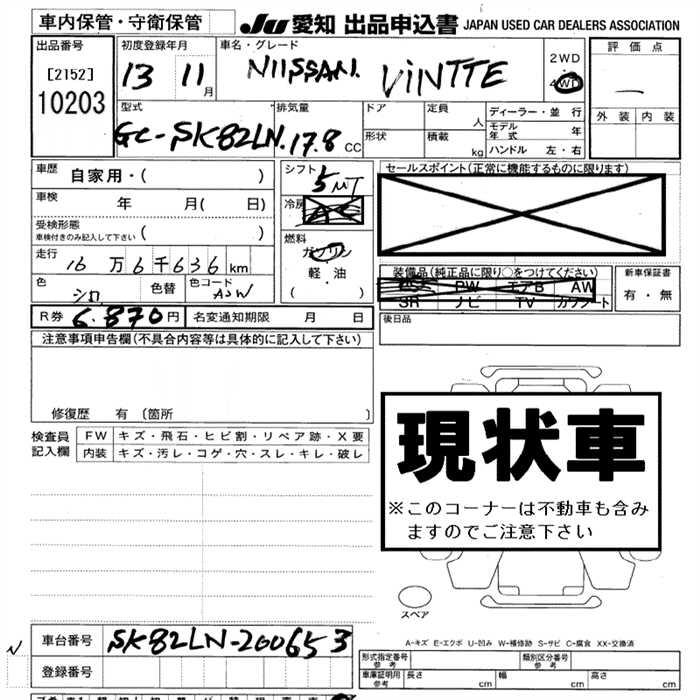 車内保管・守衛保管 JU 愛知 出品申込書 JAPAN USED CAR DEALERS ASSOCIATION
出品番号 初度登録年月 車名・グレード 2WD 評価点
[2152] 13 11月 NIISSAN VINTTE 4WD
10203 型式 排気量 ドア 定員 人 ディーラー・並行 外装 内装
GC-SK82LN 17.8 CC 形状 積載 kg モデル年式 年
ハンドル 左・右
車歴 自家用・( ) シフト 5MT セールスポイント(正常に機能するものに限ります)
車検 年 月( 日) 冷房
受検形態 車検付きのみ記入して下さい ( ) 燃料 ガソリン
走行 16万6千636km 軽・油 装備品(純正品に限り○をつけてください) 新車保証書
色 シロ 色替 色コード ( ) PW エアB AW 有・無
SR ナビ TV カワシート
R券 6.870円 名変通知期限 月 日 後日品
注意事項申告欄(不具合内容等は具体的に記入して下さい)
修復歴 有 〔箇所 〕
現状車
※このコーナーは不動車も含み
ますのでご注意下さい
検査員 FW キズ・飛石・ヒビ割・リペア跡・X要
記入欄 内装 キズ・汚レ・コゲ・穴・スレ・キレ・破レ
スペア
車台番号 SK82LN-200653
A-キズ E-エクボ U-凹み W-補修跡 S-サビ C-腐食 XX-交換済
登録番号 形式指定番号 参考 類別区分番号 参考
車庫証明用 参考 長さ cm 幅 cm 高さ cm